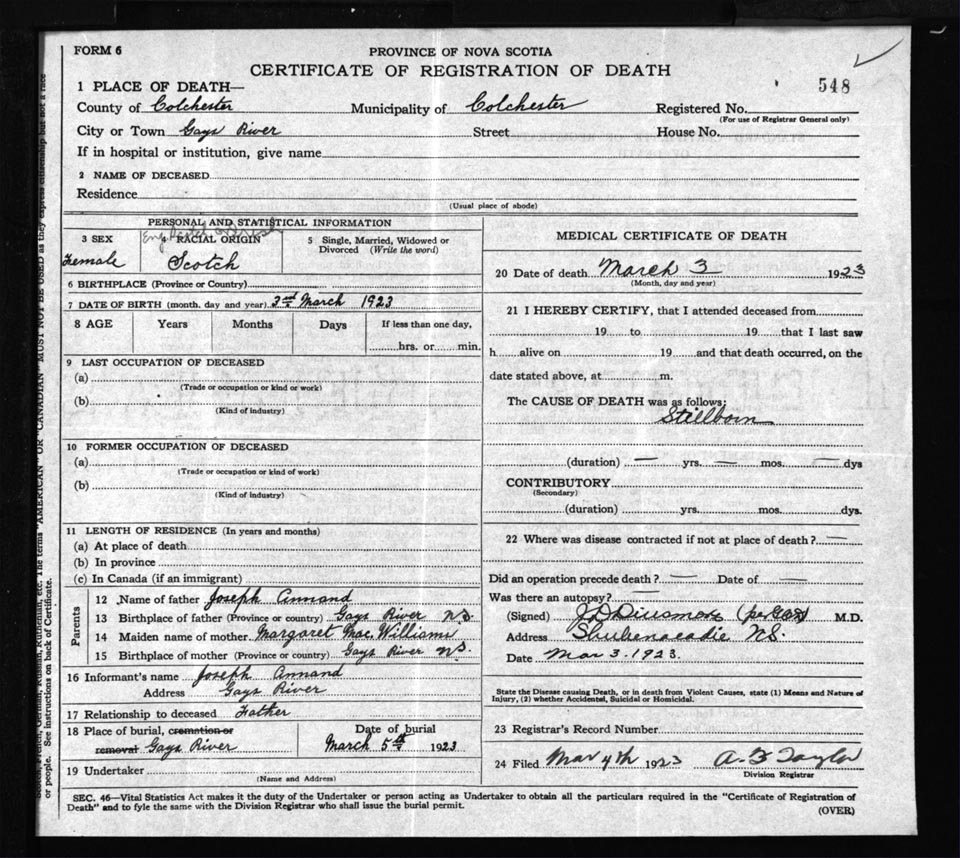 FORM 6
PROVINCE OF NOVA SCOTIA
CERTIFICATE OF REGISTRATION OF DEATH
548
1 PLACE OF DEATH—
County of Colchester Municipality of Colchester Registered No.
(For use of Registrar General only)
City or Town Gays River Street House No.
If in hospital or institution, give name
2 NAME OF DECEASED
Residence
(Usual place of abode)
PERSONAL AND STATISTICAL INFORMATION
3 SEX
Female
4 RACIAL ORIGIN
Scotch
5 Single, Married, Widowed or
Divorced (Write the word)
6 BIRTHPLACE (Province or Country)
7 DATE OF BIRTH (month, day and year) 3rd March 1923
8 AGE Years Months Days If less than one day,
hrs. or min.
9 LAST OCCUPATION OF DECEASED
(a)
(Trade or occupation or kind or work)
(b)
(Kind of industry)
10 FORMER OCCUPATION OF DECEASED
(a)
(Trade or occupation or kind of work)
(b)
(Kind of industry)
11 LENGTH OF RESIDENCE (In years and months)
(a) At place of death
(b) In province
(c) In Canada (if an immigrant)
Parents
12 Name of father Joseph Annand
13 Birthplace of father (Province or country) Gays River NS.
14 Maiden name of mother Margaret Mac.Williams
15 Birthplace of mother (Province or country) Gays River NS.
16 Informant's name Joseph Annand
Address Gays River
17 Relationship to deceased Father
18 Place of burial, cremation or
removal Gays River
Date of burial
March 5th 1923
19 Undertaker
(Name and Address)
MEDICAL CERTIFICATE OF DEATH
20 Date of death March 3 1923
(Month, day and year)
21 I HEREBY CERTIFY, that I attended deceased from
19 to 19 that I last saw
h alive on 19 and that death occurred, on the
date stated above, at m.
The CAUSE OF DEATH was as follows:
Stillborn
(duration) — yrs. — mos. — dys
CONTRIBUTORY
(Secondary)
(duration) yrs. mos. dys.
22 Where was disease contracted if not at place of death? —
Did an operation precede death? — Date of —
Was there an autopsy? —
(Signed) M.D.
Address Shubenacadie NS.
Date Mar 3. 1923.
State the Disease causing Death, or in death from Violent Causes, state (1) Means and Nature of
Injury, (2) whether Accidental, Suicidal or Homicidal.
23 Registrar's Record Number
24 Filed Mar 1923 Taylor
Division Registrar
SEC. 46—Vital Statistics Act makes it the duty of the Undertaker or person acting as Undertaker to obtain all the particulars required in the "Certificate of Registration of
Death" and to fyle the same with the Division Registrar who shall issue the burial permit.
(OVER)
or people. See instructions on back of Certificate.